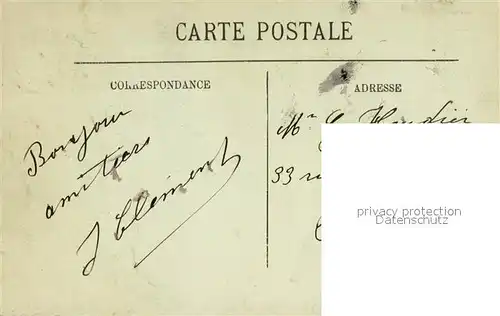 CARTE POSTALE
CORRESPONDANCE
ADRESSE
Bonjour
amitiés
J Clément
Mr
33
privacy protection
Datenschutz